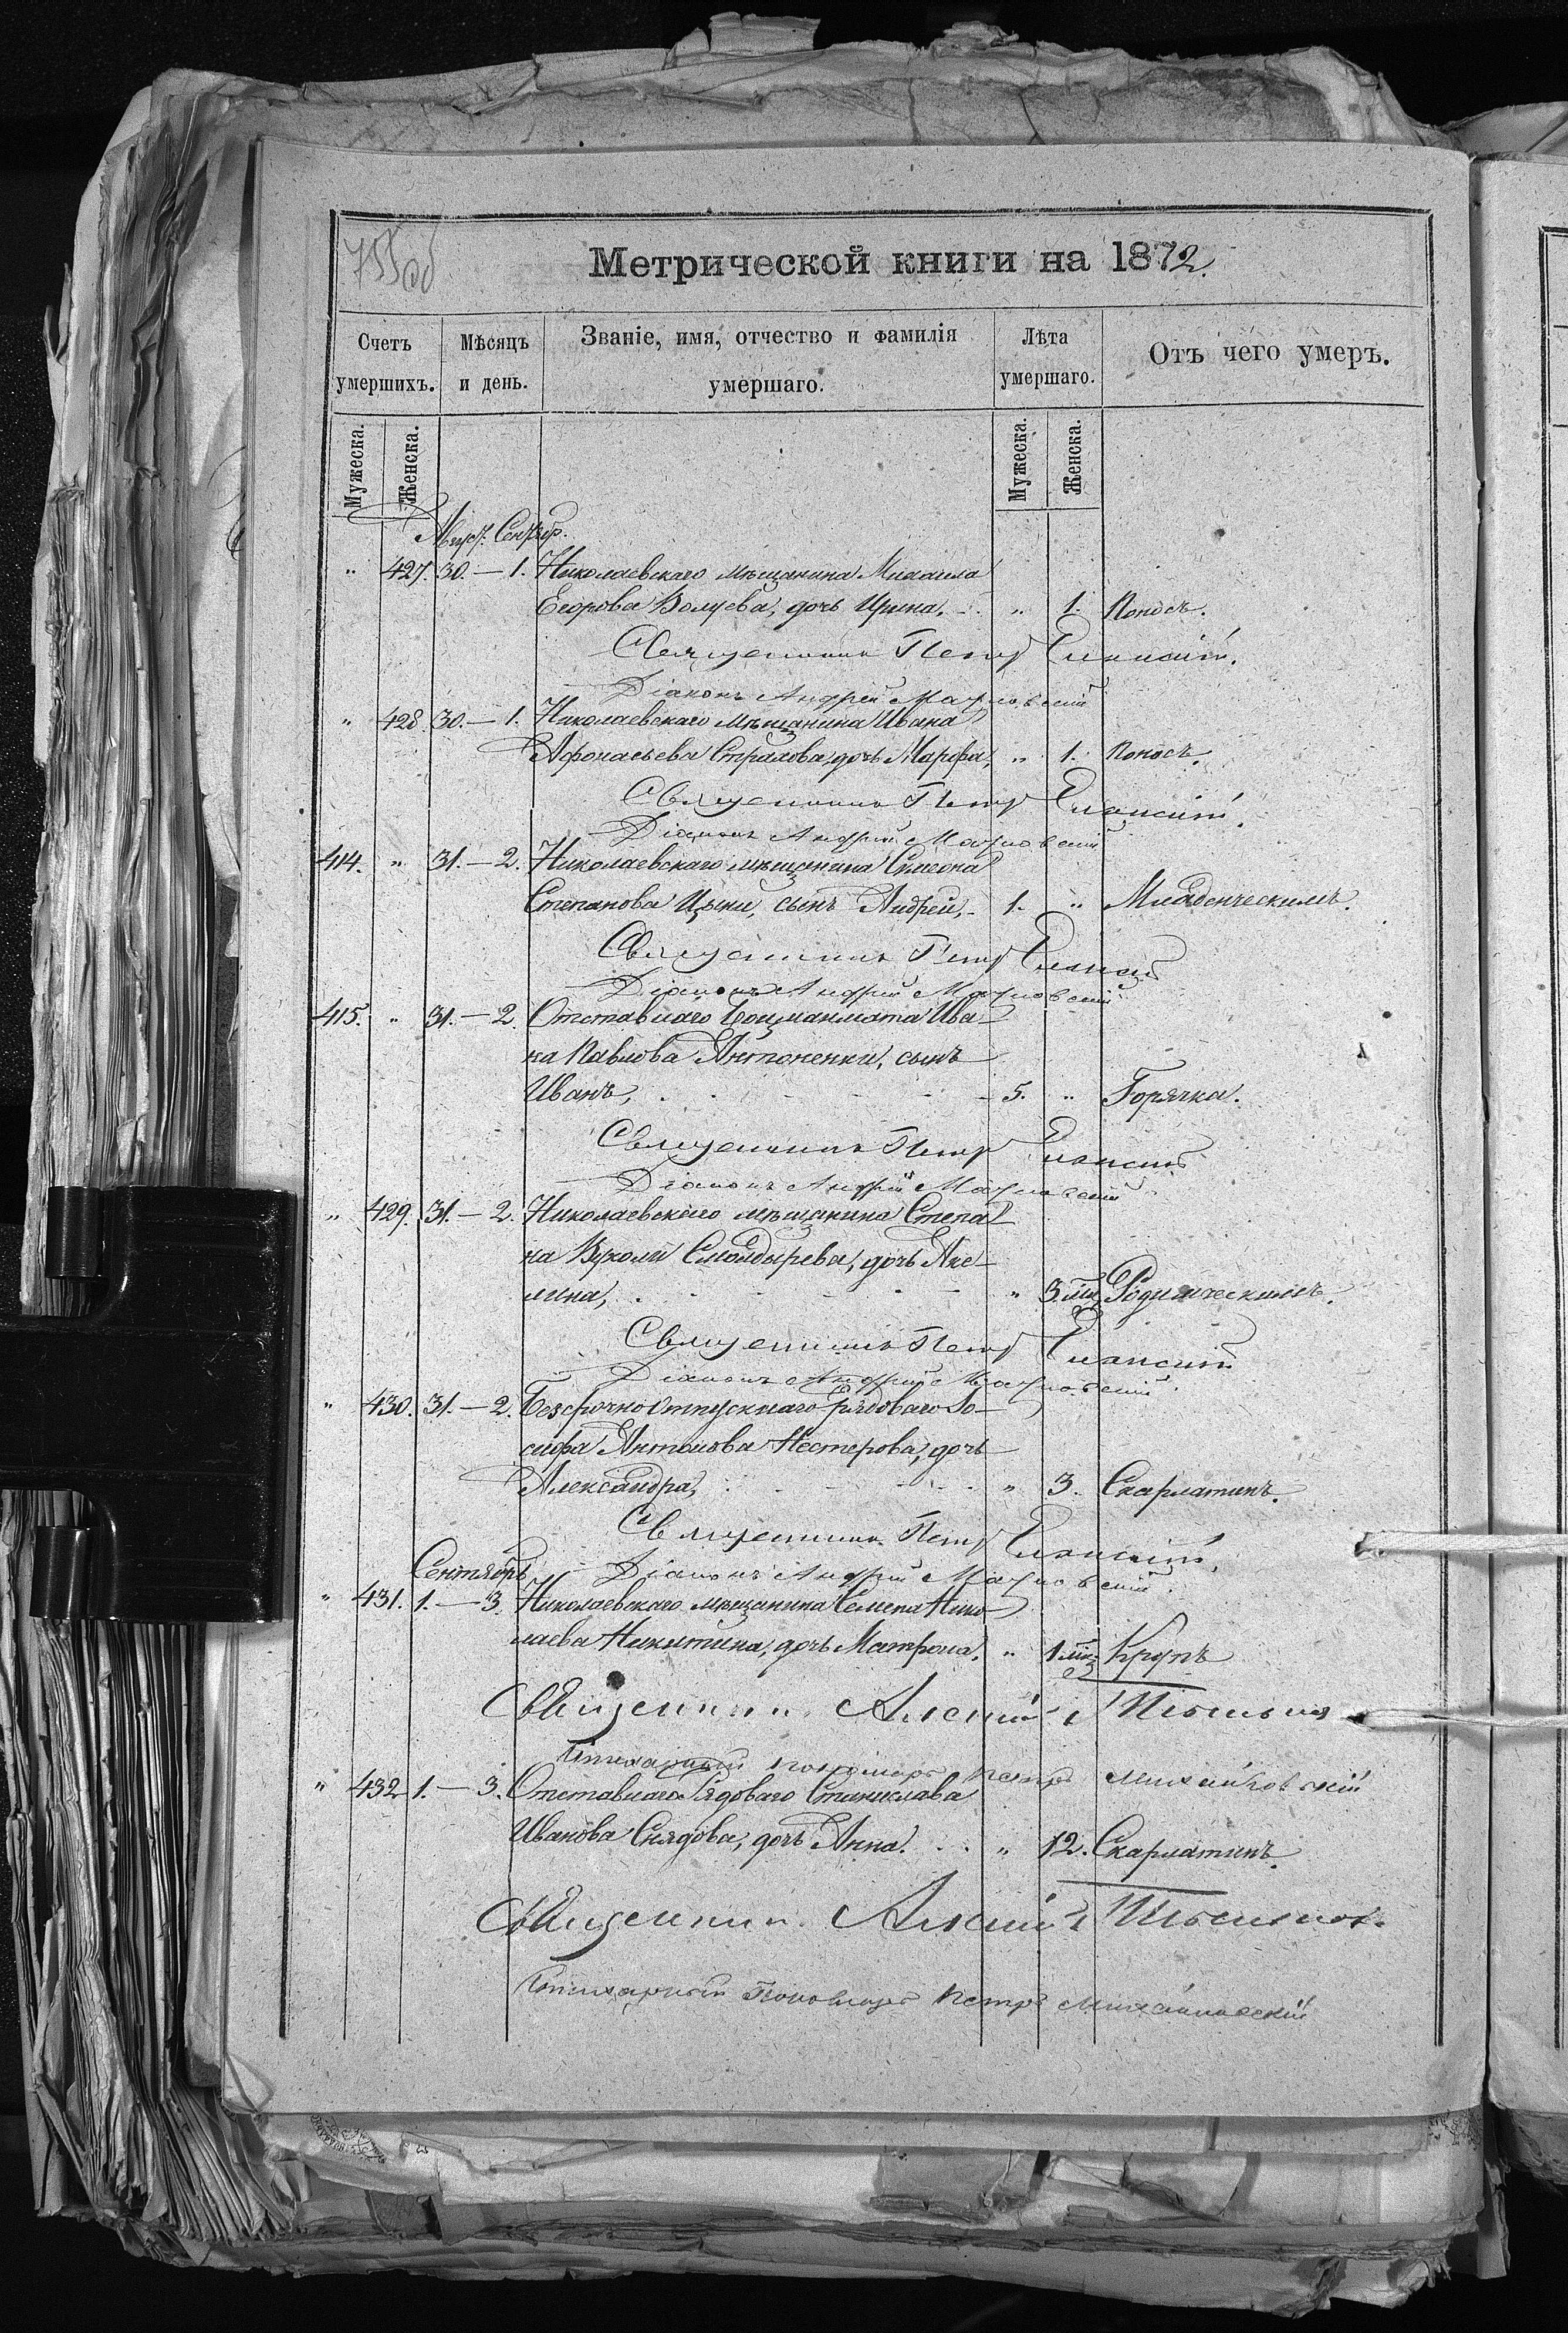 755 об
Метрической книги на 1872.
Счетъ умершихъ.
Мѣсяцъ и день.
Званіе, имя, отчество и фамилія умершаго.
Лѣта умершаго.
Отъ чего умеръ.
Мужеска. Женска. Мужеска. Женска.
Авгус. Сентябр.
" 427. 30. — 1. Николаевскаго мѣщанина Михаила
Егорова Волуева, дочь Ирина. " 1. Поносъ.
Священникъ Петръ Еланскій.
Діаконъ Андрей
" 428. 30. — 1. Николаевскаго мѣщанина Ивана
Афонасьева Страхова, дочь Марфа, " 1. Поносъ.
Священникъ Петръ Еланскій.
Діаконъ Андрей
414. " 31. — 2. Николаевскаго мѣщанина Симеона
Степанова Цыки, сынъ Андрей, 1. " Младенческимъ.
Священникъ Петръ Еланскій
Діаконъ Андрей
415. " 31. — 2. Отставнаго боцманмата Ива-
на Павлова Антоненки, сынъ
Иванъ, 5. " Горячка.
Священникъ Петръ Еланскій
Діаконъ Андрей
" 429. 31. — 2. Николаевскаго мѣщанина Степа-
на Смолдырева, дочь Аке-
лина, " 3 мц. Родимческимъ.
Священникъ Петръ Еланскій
Діаконъ Андрей
" 430. 31. — 2. Безсрочно отпускнаго рядоваго Іо-
сифа Антонова Нестерова, дочь
Александра, " 3. Скарлатинъ.
Священникъ Петръ Еланскій.
Сентябрь Діаконъ Андрей
" 431. 1. — 3. Николаевскаго мѣщанина Семена Нико-
лаева Никитина, дочь Матрона. " 1 мц. Крупъ
Священникъ Алексій
Стихарный пономарь Петръ Михайловскій
" 432 1. — 3. Отставнаго Рядоваго Станислава
Иванова Снядова, дочь Анна. " 12. Скарлатинъ.
Священникъ Алексій
Стихарный Пономарь Петръ Михайловскій